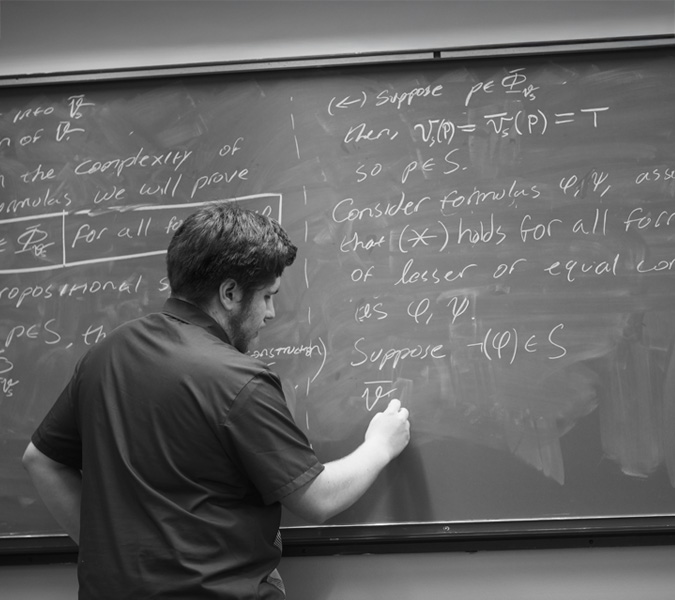 into v̅s
n of v̅.
the complexity of
ormulas we will prove
∈ Φv̅s for all fo
ropositional s
p∈S, th
S
v̅s
onstruction)
(←) Suppose p∈Φv̅s
then, v̅s(p) = v̅s(p) = T
so p∈S.
Consider formulas φ, ψ, ass
that (*) holds for all form
of lesser or equal com
as φ, ψ.
Suppose ¬(φ) ∈ S
v̅